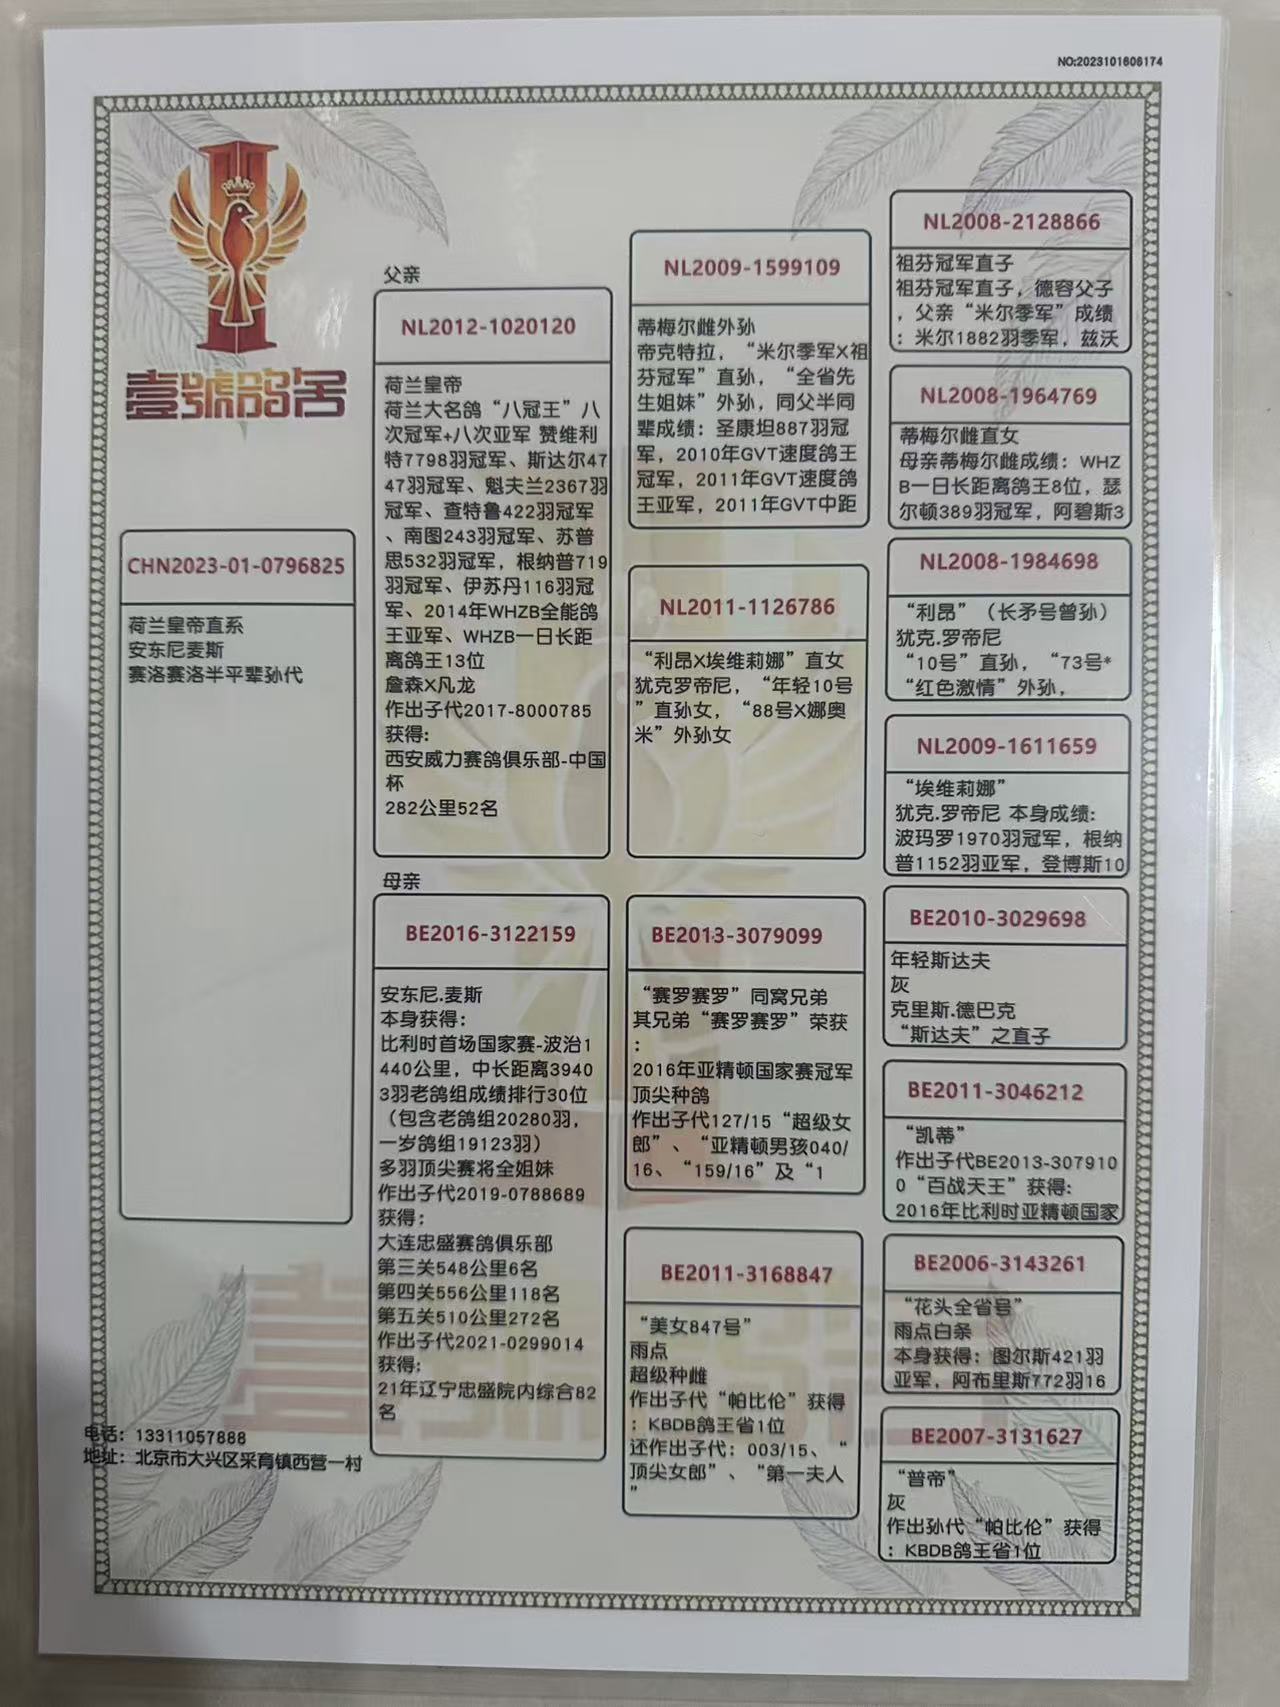 NO:2023101606174
壹號鸽舍
CHN2023-01-0796825
荷兰皇帝直系
安东尼麦斯
赛洛赛洛半平辈孙代
父亲
NL2012-1020120
荷兰皇帝
荷兰大名鸽“八冠王”八
次冠军+八次亚军 赞维利
特7798羽冠军、斯达尔47
47羽冠军、魁夫兰2367羽
冠军、查特鲁422羽冠军
、南图243羽冠军、苏普
思532羽冠军，根纳普719
羽冠军、伊苏丹116羽冠
军、2014年WHZB全能鸽
王亚军、WHZB一日长距
离鸽王13位
詹森X凡龙
作出子代2017-8000785
获得：
西安威力赛鸽俱乐部-中国
杯
282公里52名
母亲
BE2016-3122159
安东尼.麦斯
本身获得：
比利时首场国家赛-波治1
440公里，中长距离3940
3羽老鸽组成绩排行30位
（包含老鸽组20280羽，
一岁鸽组19123羽）
多羽顶尖赛将全姐妹
作出子代2019-0788689
获得：
大连忠盛赛鸽俱乐部
第三关548公里6名
第四关556公里118名
第五关510公里272名
作出子代2021-0299014
获得：
21年辽宁忠盛院内综合82
名
NL2009-1599109
蒂梅尔雌外孙
帝克特拉，“米尔季军X祖
芬冠军”直孙，“全省先
生姐妹”外孙，同父半同
辈成绩：圣康坦887羽冠
军，2010年GVT速度鸽王
冠军，2011年GVT速度鸽
王亚军，2011年GVT中距
NL2011-1126786
“利昂X埃维莉娜”直女
犹克罗帝尼，“年轻10号
”直孙女，“88号X娜奥
米”外孙女
BE2013-3079099
“赛罗赛罗”同窝兄弟
其兄弟“赛罗赛罗”荣获
：
2016年亚精顿国家赛冠军
顶尖种鸽
作出子代127/15“超级女
郎”、“亚精顿男孩040/
16、“159/16”及“1
BE2011-3168847
“美女847号”
雨点
超级种雌
作出子代“帕比伦”获得
：KBDB鸽王省1位
还作出子代：003/15、“
顶尖女郎”、“第一夫人
”
NL2008-2128866
祖芬冠军直子
祖芬冠军直子，德容父子
，父亲“米尔季军”成绩
：米尔1882羽季军，兹沃
NL2008-1964769
蒂梅尔雌直女
母亲蒂梅尔雌成绩：WHZ
B一日长距离鸽王8位，瑟
尔顿389羽冠军，阿碧斯3
NL2008-1984698
“利昂”（长矛号曾孙）
犹克.罗帝尼
“10号”直孙，“73号*
“红色激情”外孙，
NL2009-1611659
“埃维莉娜”
犹克.罗帝尼 本身成绩：
波玛罗1970羽冠军，根纳
普1152羽亚军，登博斯10
BE2010-3029698
年轻斯达夫
灰
克里斯.德巴克
“斯达夫”之直子
BE2011-3046212
“凯蒂”
作出子代BE2013-307910
0“百战天王”获得：
2016年比利时亚精顿国家
BE2006-3143261
“花头全省号”
雨点白条
本身获得：图尔斯421羽
亚军，阿布里斯772羽16
BE2007-3131627
“普帝”
灰
作出孙代“帕比伦”获得
：KBDB鸽王省1位
电话：13311057888
地址：北京市大兴区采育镇西营一村